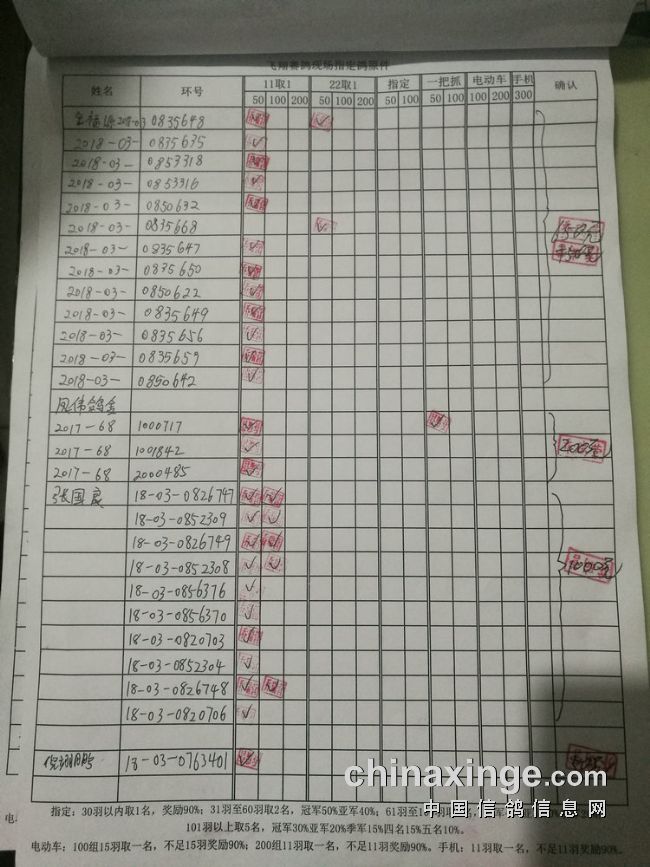 飞翔赛鸽现场指定鸽原件
姓名 环号 11取1 22取1 指定 一把抓 电动车 手机 确认
50 100 200 50 100 200 50 100 50 100 100 200 300
2018-03 0835648
2018-03- 0835635
2018-03- 0853318
2018-03- 0853316
2018-03- 0850632
2018-03- 0835668
2018-03- 0835647
2018-03- 0835650
2018-03- 0850622
2018-03- 0835649
2018-03- 0835656
2018-03- 0835659
2018-03- 0850642
2017-68 1000717
2017-68 1001842
2017-68 2000485
200元
张国良 18-03-0826747
18-03-0852309
18-03-0826749
18-03-0852308
1000元
18-03-0856376
18-03-0856370
18-03-0820703
18-03-0852304
18-03-0826748
18-03-0820706
18-03-0763401
chinaxinge.com
中国信鸽信息网
指定：30羽以内取1名，奖励90%；31羽至60羽取2名，冠军50%亚军40%；61羽至1
101羽以上取5名，冠军30%亚军20%季军15%四名15%五名10%。
电动车：100组15羽取一名，不足15羽奖励90%；200组11羽取一名，不足11羽奖励90%。手机：11羽取一名，不足11羽奖励90%。